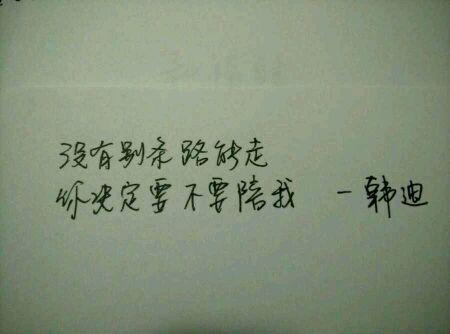 没有别条路能走
你决定要不要陪我 一韩迪